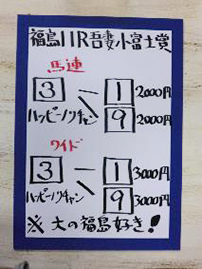 福島11R吾妻小富士賞
馬連
3 1 2000円
ハッピーノリチャン 9 2000円
ワイド
3 1 3000円
ハッピーノリチャン 9 3000円
※大の福島好き!